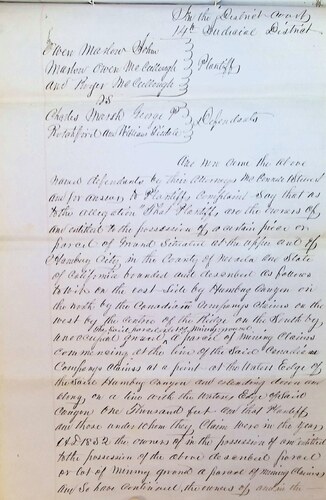 In the District Court
14th Judicial District
Owen Marlow John
Marlow Owen McCullough Plaintiffs
and Roger McCullough
vs
Charles Marsh George W
and William Defendants
And now come the above
named defendants by their Attorneys McConnel
and for answer to Plaintiffs Complaint say that as
to the allegation That Plaintiffs are the owners of
and entitled to the possession of, a certain piece or
parcel of Ground Situated at the upper end of
Humbug City, in the County of Nevada and State
of California bounded and described as follows
to wit, on the east side by Humbug Canyon on
the north by the Canadian Companys Claims on the
west by the Centre of the Ridge, on the South by
unoccupied ground, the said parcel of mining ground a parcel of Mining Claims
commencing at the line of the Said Canadian
Companys Claims at a point at the Waters Edge of
the Said Humbug Canyon and extending down and
along, on a line with the Waters Edge of Said
Canyon One Thousand feet and that Plaintiffs
and those under whom they Claim were in the year
AD 1852 the owners of in the possession of and entitled
to the possession of the above described parcel
or lot of Mining ground a parcel of Mining Claims
and So have continued the owners of and in the